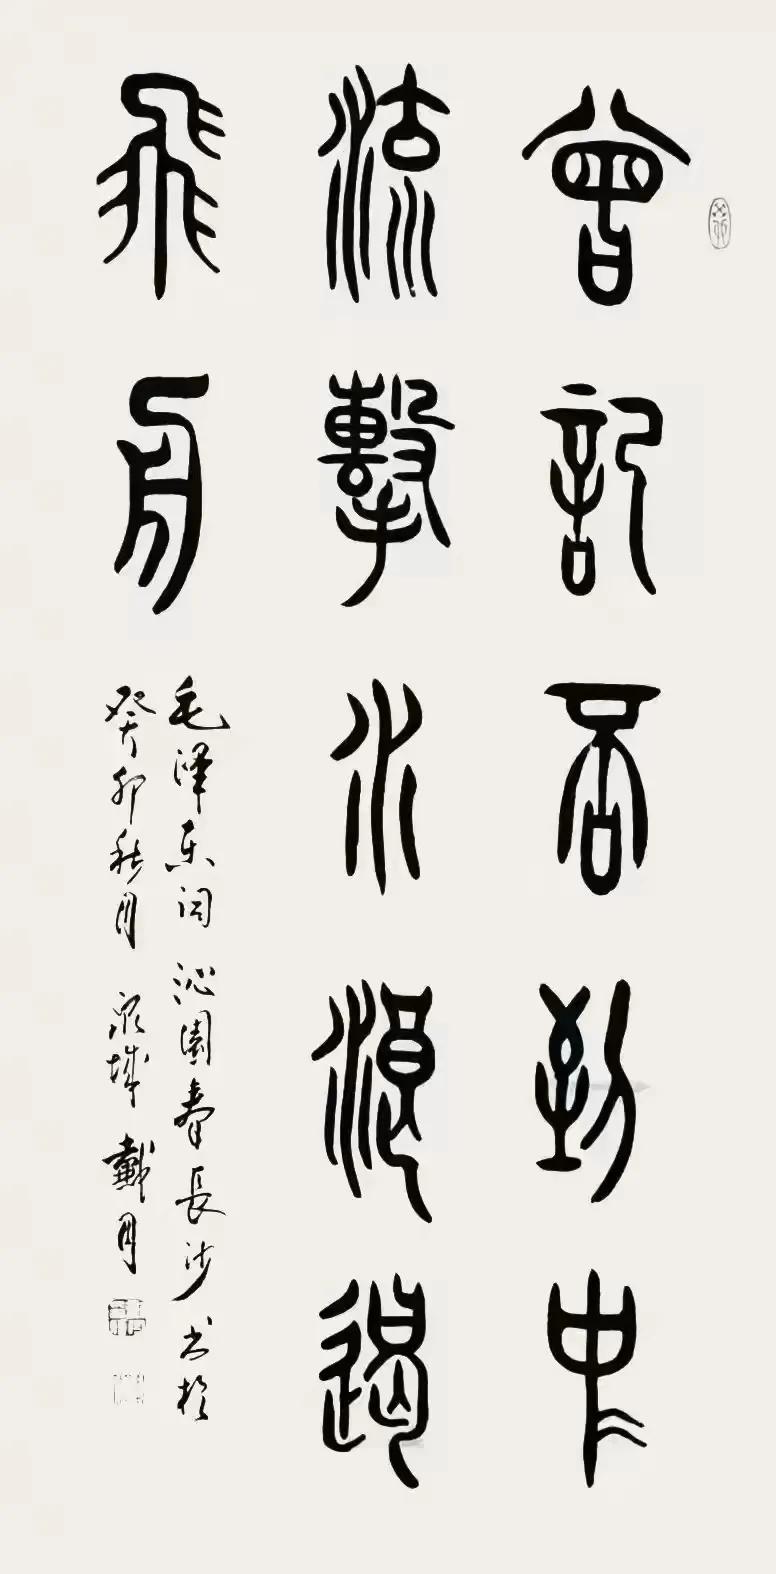 曾記否到中
流擊水浪遏
飛舟
毛泽东词沁園春長沙书於
癸卯秋月泉城戴月